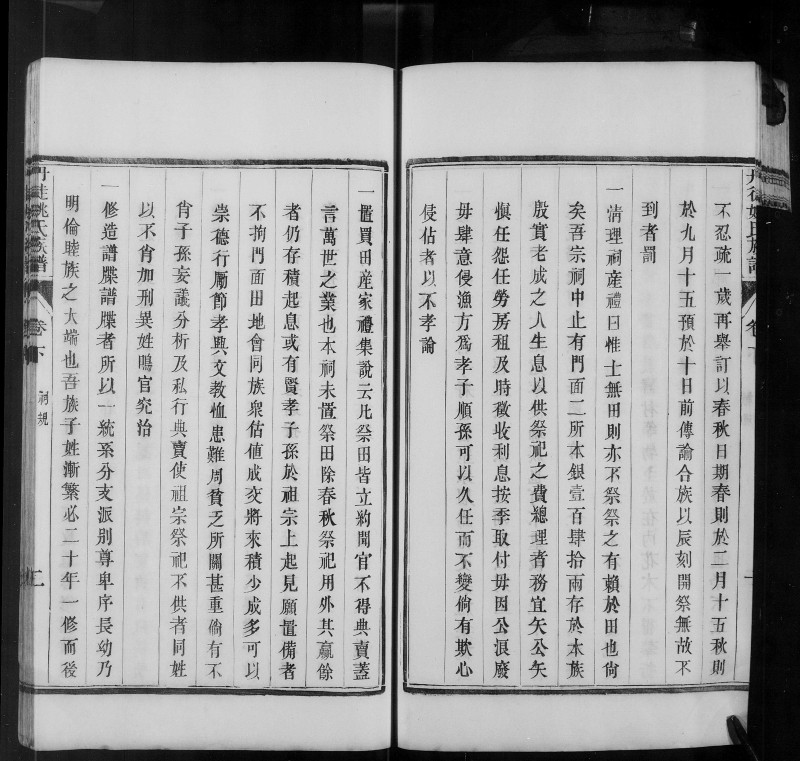 不忍疏一歲再舉訂以春秋日期春則於二月十五秋則
於九月十五預於十日前傳諭合族以辰刻開祭無故不
到者罰
一清理祠產禮曰惟士無田則亦不祭祭之有賴於田也尚
矣吾宗祠中止有門面二所本銀壹百肆拾兩存於本族
殷實老成之人生息以供祭祀之費總理者務宜矢公矢
愼任怨任勞房租及時徵收利息按季取付毋因公浪廢
毋肆意侵漁方爲孝子順孫可以久任而不變倘有欺心
侵佔者以不孝論
一置買田産家禮集說云凡祭田皆立約聞官不得典賣蓋
言萬世之業也本祠未置祭田除春秋祭祀用外其贏餘
者仍存積起息或有賢孝子孫於祖宗上起見願置備者
不拘門面田地會同族衆估値成交將來積少成多可以
崇德行厲節孝興文教恤患難周貧乏所關甚重倘有不
肖子孫妄議分析及私行典賣使祖宗祭祀不供者同姓
以不肖加刑異姓鳴官究治
一修造譜牒譜牒者所以一統系分支派別尊卑序長幼乃
明倫睦族之大端也吾族子姓漸繁必二十年一修而後
丹徒姚氏族譜
卷下
祠規
二